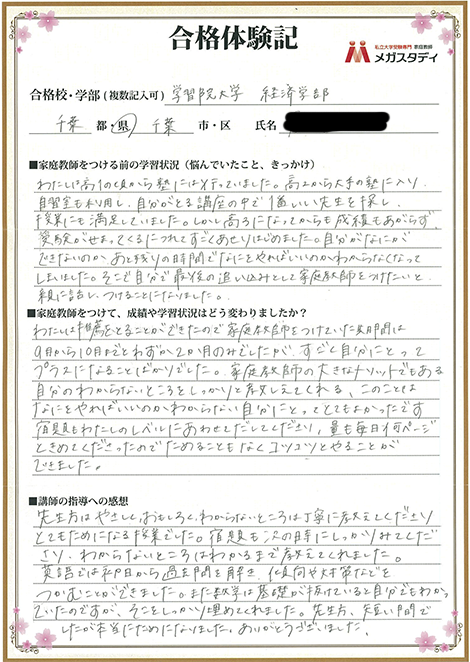 合格体験記
私立大学受験専門 家庭教師
メガスタディ
合格校・学部(複数記入可) 学習院大学 経済学部
千葉 都・県 千葉 市・区 氏名
■家庭教師をつける前の学習状況(悩んでいたこと、きっかけ)
わたしは高1の頃から塾には行っていました。高2から大手の塾に入り、
自習室も利用し、自分がとる講座の中で優しい先生を探し、
授業にも満足していました。しかし高3になってからも成績もあがらず、
受験がせまってくるにつれてすごくあせりはじめました。自分がなにが
できないのか あと残りの時間でなにをやればいいのかわからなくなって
しまいました。そこで自分で最後の追い込みとして家庭教師をつけたいと、
親に話し、つけることになりました。
■家庭教師をつけて、成績や学習状況はどう変わりましたか?
わたしは推薦をとることができたので家庭教師をつけていた期間は
9月から10月までとわずか2か月のみでしたが、すごく自分にとって
プラスになることばかりでした。家庭教師の大きなメリットでもある
自分のわからないところをしっかりと教えてくれる、このことは
なにをやればいいのかわからない自分にとってとてもよかったです
宿題もわたしのレベルにあわせてだしてくださり、量も毎日何ページ
ときめてくださったのでためることもなくコツコツとやることが
できました。
■講師の指導への感想
先生方はやさしく、おもしろく、わからないところは丁寧に教えてくださり
とてもためになる授業でした。宿題も次の時にしっかりみてくだ
さり、わからないところはわかるまで教えてくれました。
英語では初日から過去問を解き、傾向や対策などを
つかむことができました。また数学は基礎が抜けていると自分でもわかっ
ていたのですが、そこをしっかり埋めてくれました。先生方、短い間で
したが本当にためになりました。ありがとうございました。